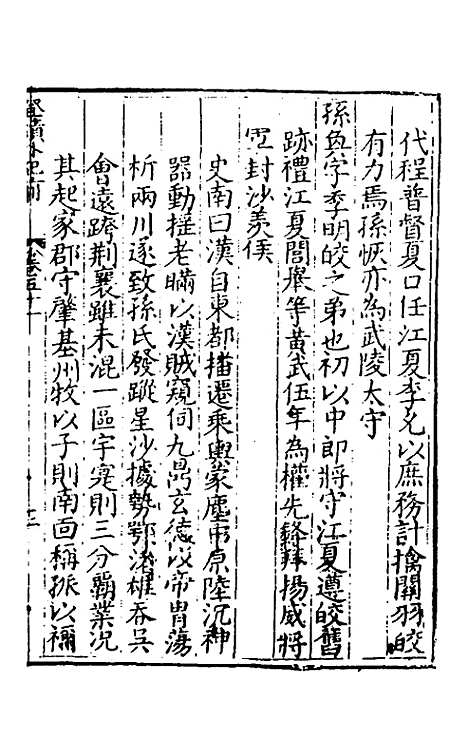 代程普督夏口任江夏李允以庶務計擒關羽皎
有力焉孫恢亦為武陵太守
孫奐字季明皎之弟也初以中郎將守江夏遵皎舊
跡禮江夏閭舉等黃武伍年為權先鋒拜揚威將
軍封沙羡侯
史南曰漢自東都播遷乘輿蒙塵中原陸沉神
器動搖老瞞以漢賊窺伺九鼎玄德以帝胄蕩
析兩川遂致孫氏發蹤星沙據勢鄂渚雄吞吳
會遠跨荆襄雖未混一區宇寔則三分霸業況
其起家郡守肇基州牧以子則南面稱孤以禰